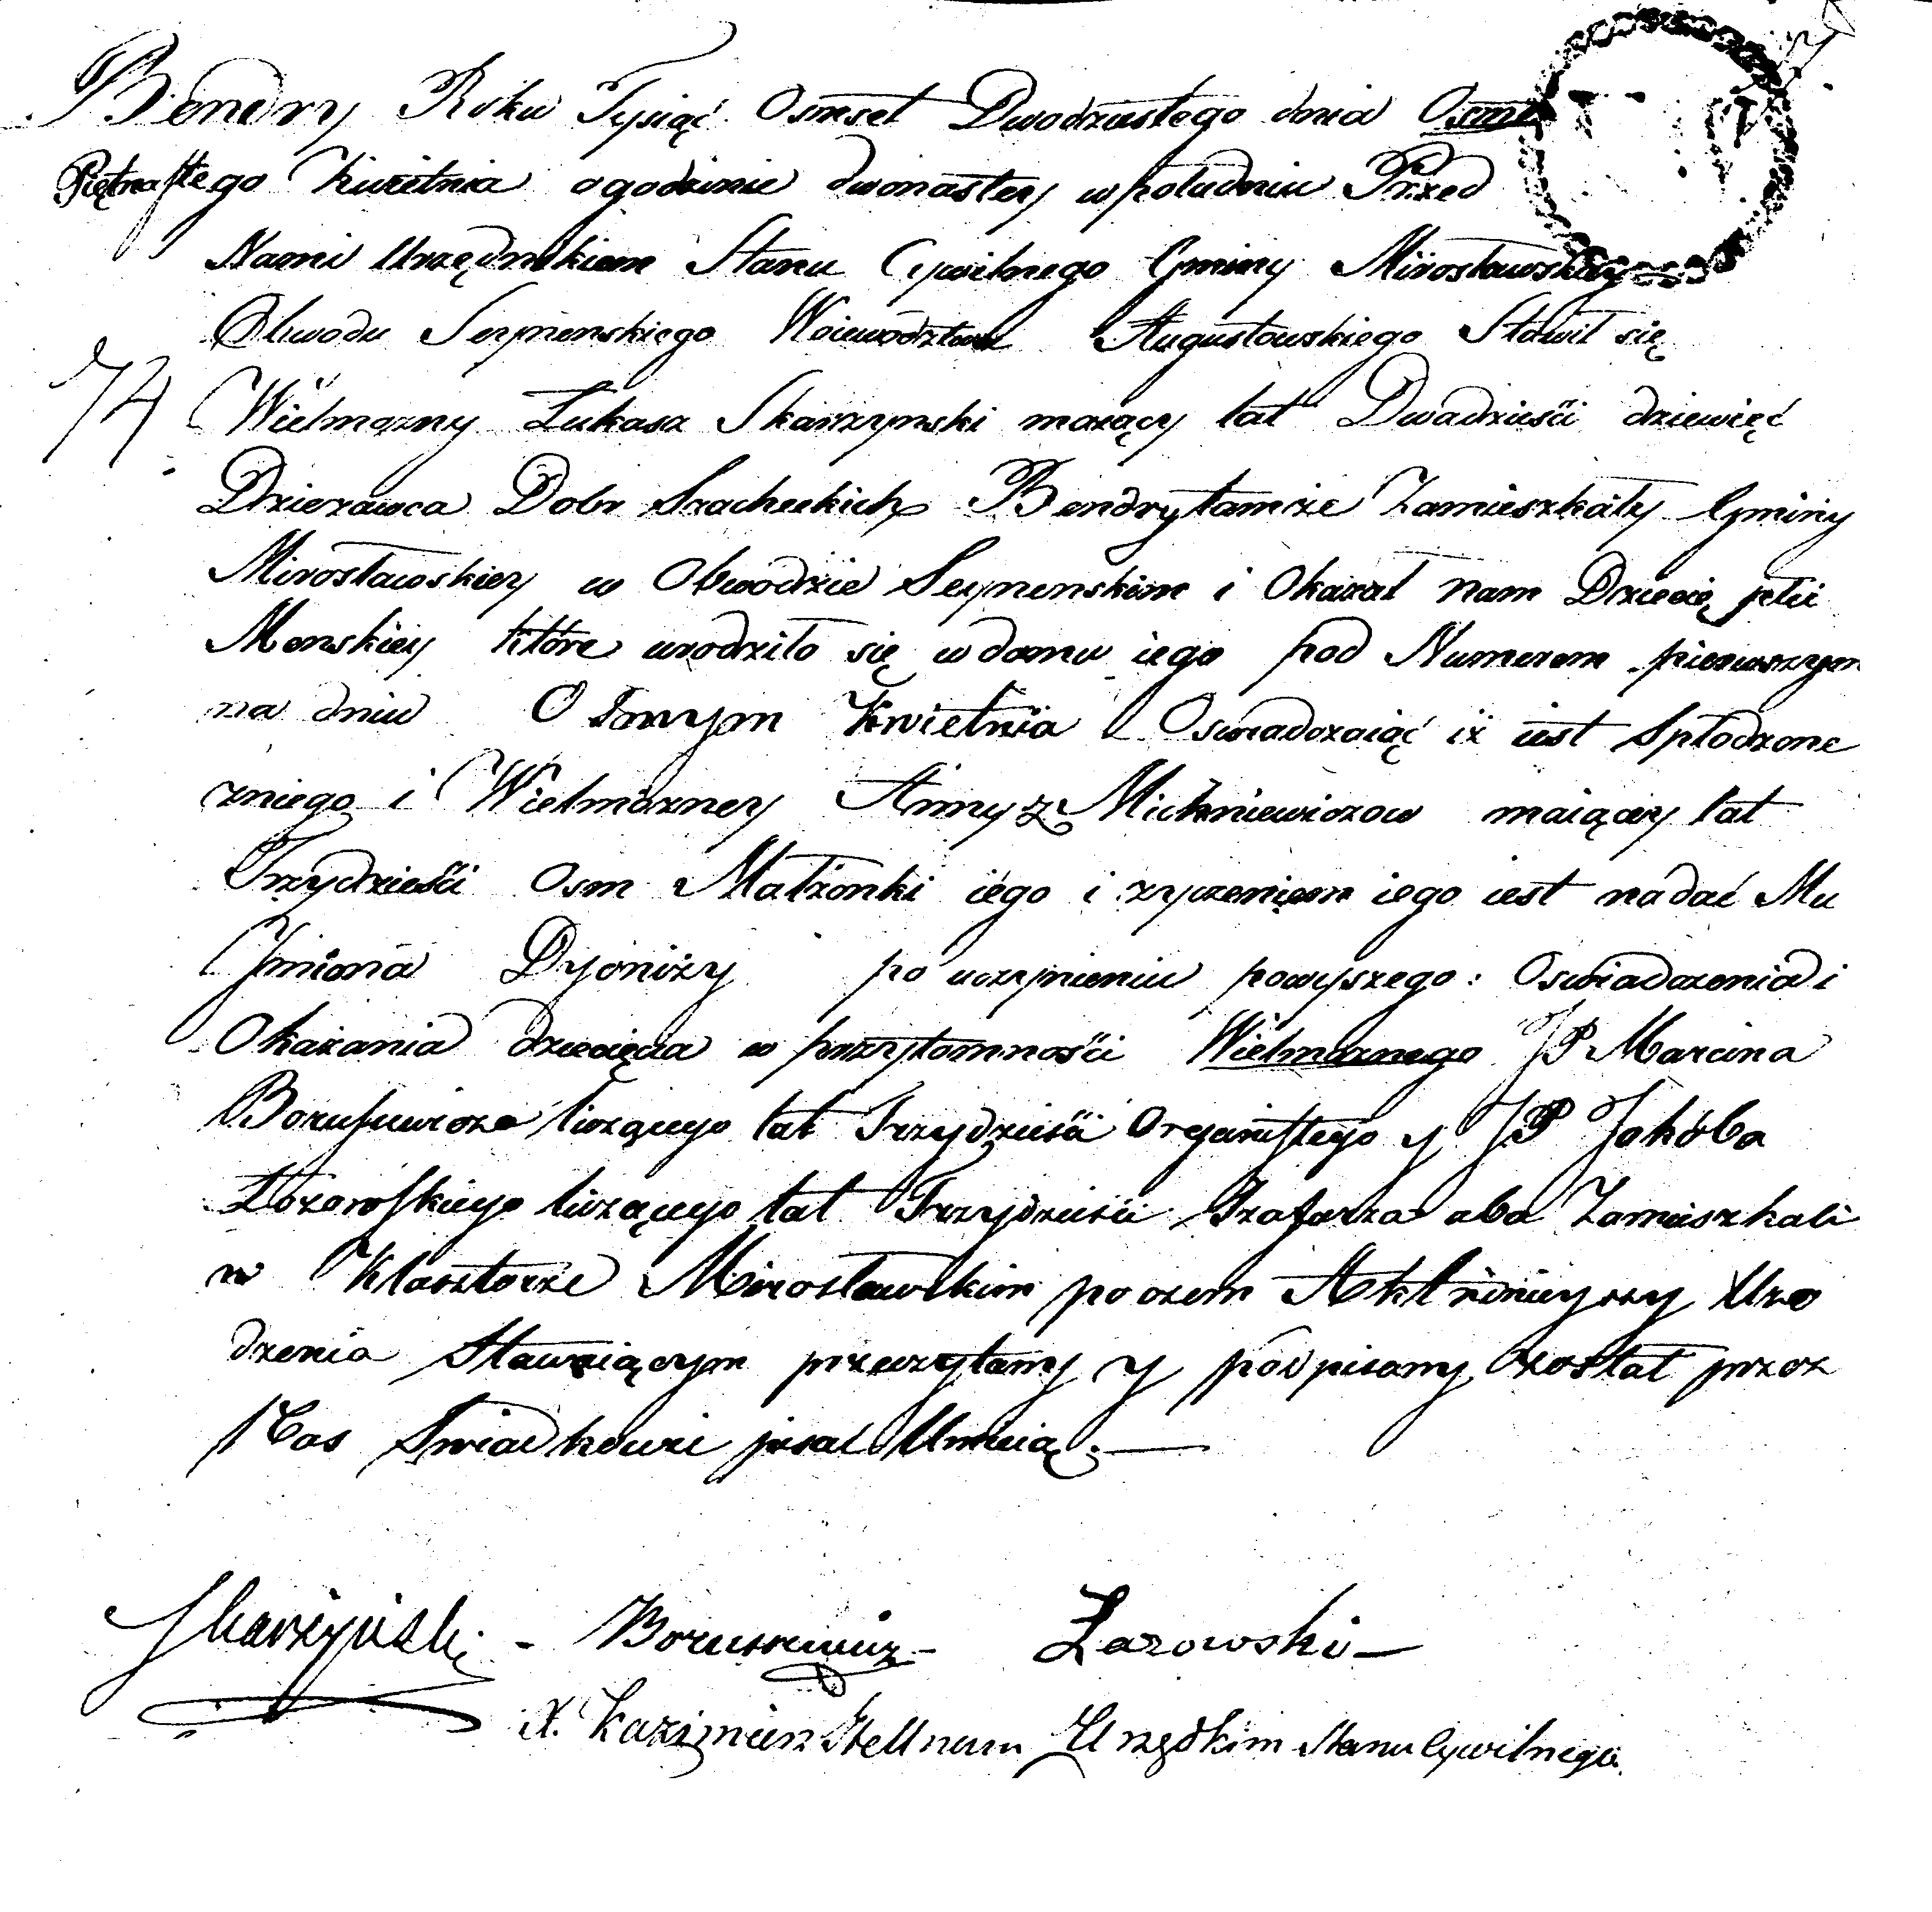 Bendry Roku Tysiąć Osmset Dwodziestego dnia Osme
Piętnastego Kwietnia ogodzinie dwonastey wpołudniu Przed
Nami Urzędnikiem Stanu Cywilnego Gminy Mirosławskiey
Obwodu Seynenskiego Woiewodztwa Augustowskiego Stawił się
74 Wielmozny Łukasz Skarzynski maiący lat Dwadzieści dziewięć
Dzierzawca Dobr Szlacheckich Bendrytamże Zamieszkały Gminy
Mirosławskiey w Obwodzie Seynenskim i Okazał nam Dziecię płci
Menskiey które urodziło się wdomu iego pod Numerem pierwszym
na dniu Osmym Kwietnia Oswiadczaiąć iż iest Spłodzone
zniego i Wielmozney Anny z Michniewiczow maiącey lat
Trzydzieści Osm Małżonki iego i zyczeniem iego iest nadać Mu
Jmiona Dyonizy po uczynieniu powyszego: Oswiadczenia i
Okazania dziecięcia w przytomności Wielmoznego JP Marcina
Borusewicza liczącego lat Trzydzieści Organistego y JP Jakóba
Łozorofskiego liczącego lat Trzydzieści Szafarza oba Zamieszkali
w Klasztorze Mirosławskim poczem Akt ninieyszy Uro
dzenia Stawaiącym przeczytany y podpisany został przez
Nas Swiadkowie pisać Umieią.
Skarzyński - Borusewicz - Łazowski -
X. Kazimierz Hellmann Urzędkim Stanu Cywilnego.